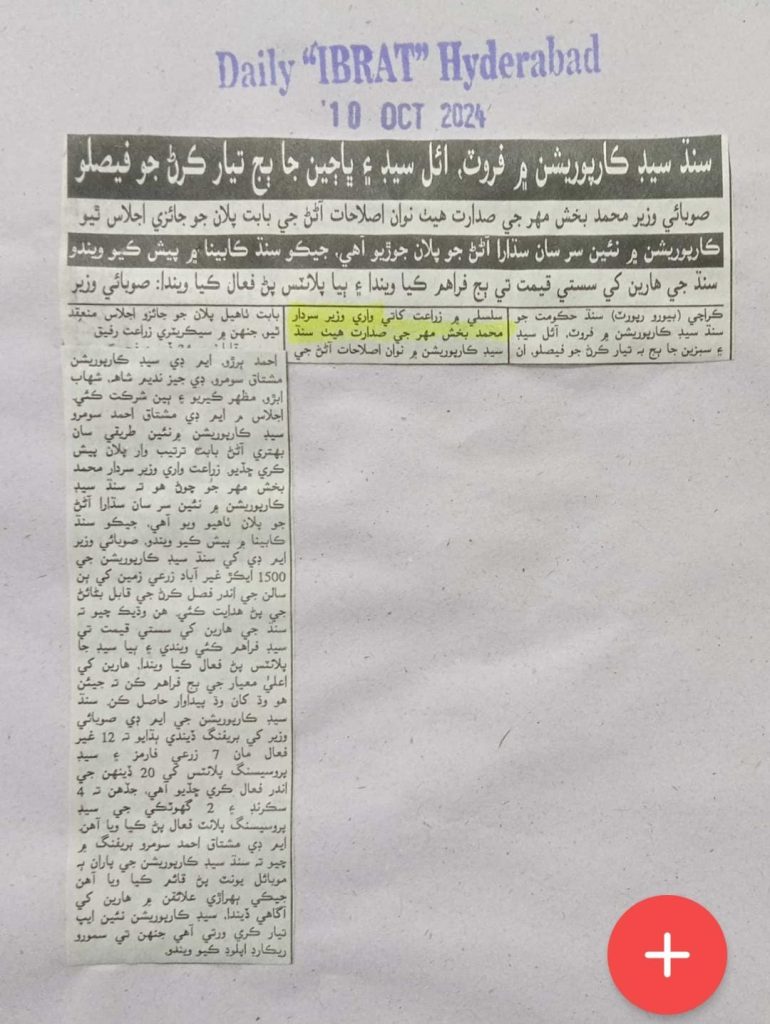 Daily “IBRAT” Hyderabad
'10 OCT 2024
سنڌ سيڊ ڪارپوريشن ۾ فروٽ، آئل سيڊ ۽ ڀاڄين جا ٻج تيار ڪرڻ جو فيصلو
صوبائي وزير محمد بخش مهر جي صدارت هيٺ نوان اصلاحات آڻڻ جي بابت پلان جو جائزي اجلاس ٿيو
ڪارپوريشن ۾ نئين سر سان سڌارا آڻڻ جو پلان جوڙيو آهي، جيڪو سنڌ ڪابينا ۾ پيش ڪيو ويندو
سنڌ جي هارين کي سستي قيمت تي ٻج فراهم ڪيا ويندا ۽ ٻيا پلانٽس پڻ فعال ڪيا ويندا: صوبائي وزير
ڪراچي (بيورو رپورٽ) سنڌ حڪومت جو
سنڌ سيڊ ڪارپوريشن ۾ فروٽ، آئل سيڊ
۽ سبزين جا ٻج به تيار ڪرڻ جو فيصلو، ان
سلسلي ۾ زراعت کاتي واري وزير سردار
محمد بخش مهر جي صدارت هيٺ سنڌ
سيڊ ڪارپوريشن ۾ نوان اصلاحات آڻڻ جي
بابت ٺاهيل پلان جو جائزو اجلاس منعقد
ٿيو، جنهن ۾ سيڪريٽري زراعت رفيق
احمد ٻرڙو، ايم ڊي سيڊ ڪارپوريشن
مشتاق سومرو، ڊي جيز نديم شاهه، شهاب
ابڙو، مظهر ڪيريو ۽ ٻين شرڪت ڪئي.
اجلاس ۾ ايم ڊي مشتاق احمد سومرو
سيڊ ڪارپوريشن ۾ نئين طريقي سان
بهتري آڻڻ بابت ترتيب وار پلان پيش
ڪري ڇڏيو. زراعت واري وزير سردار محمد
بخش مهر جو چوڻ هو ته سنڌ سيڊ
ڪارپوريشن ۾ نئين سر سان سڌارا آڻڻ
جو پلان ٺاهيو ويو آهي، جيڪو سنڌ
ڪابينا ۾ پيش ڪيو ويندو، صوبائي وزير
ايم ڊي کي سنڌ سيڊ ڪارپوريشن جي
1500 ايڪڙ غير آباد زرعي زمين کي ٻن
سالن جي اندر فصل ڪرڻ جي قابل بڻائڻ
جي پڻ هدايت ڪئي. هن وڌيڪ چيو ته
سنڌ جي هارين کي سستي قيمت تي
سيڊ فراهم ڪئي ويندي ۽ ٻيا سيڊ جا
پلانٽس پڻ فعال ڪيا ويندا، هارين کي
اعليٰ معيار جي ٻج فراهم ڪن ته جيئن
هو وڌ کان وڌ پيداوار حاصل ڪن. سنڌ
سيڊ ڪارپوريشن جي ايم ڊي صوبائي
وزير کي بريفنگ ڏيندي ٻڌايو ته 12 غير
فعال مان 7 زرعي فارمز ۽ سيڊ
پروسيسنگ پلانٽس کي 20 ڏينهن جي
اندر فعال ڪري ڇڏيو آهي، جڏهن ته 4
سڪرنڊ ۽ 2 گهوٽڪي جي سيڊ
پروسيسنگ پلانٽ فعال پڻ ڪيا ويا آهن.
ايم ڊي مشتاق احمد سومرو بريفنگ ۾
چيو ته سنڌ سيڊ ڪارپوريشن جي پاران ٻه
موبائل يونٽ پڻ قائم ڪيا ويا آهن
جيڪي ٻهراڙي علائقن ۾ هارين کي
آگاهي ڏيندا، سيڊ ڪارپوريشن نئين ايپ
تيار ڪري ورتي آهي جنهن تي سمورو
ريڪارڊ اپلوڊ ڪيو ويندو.